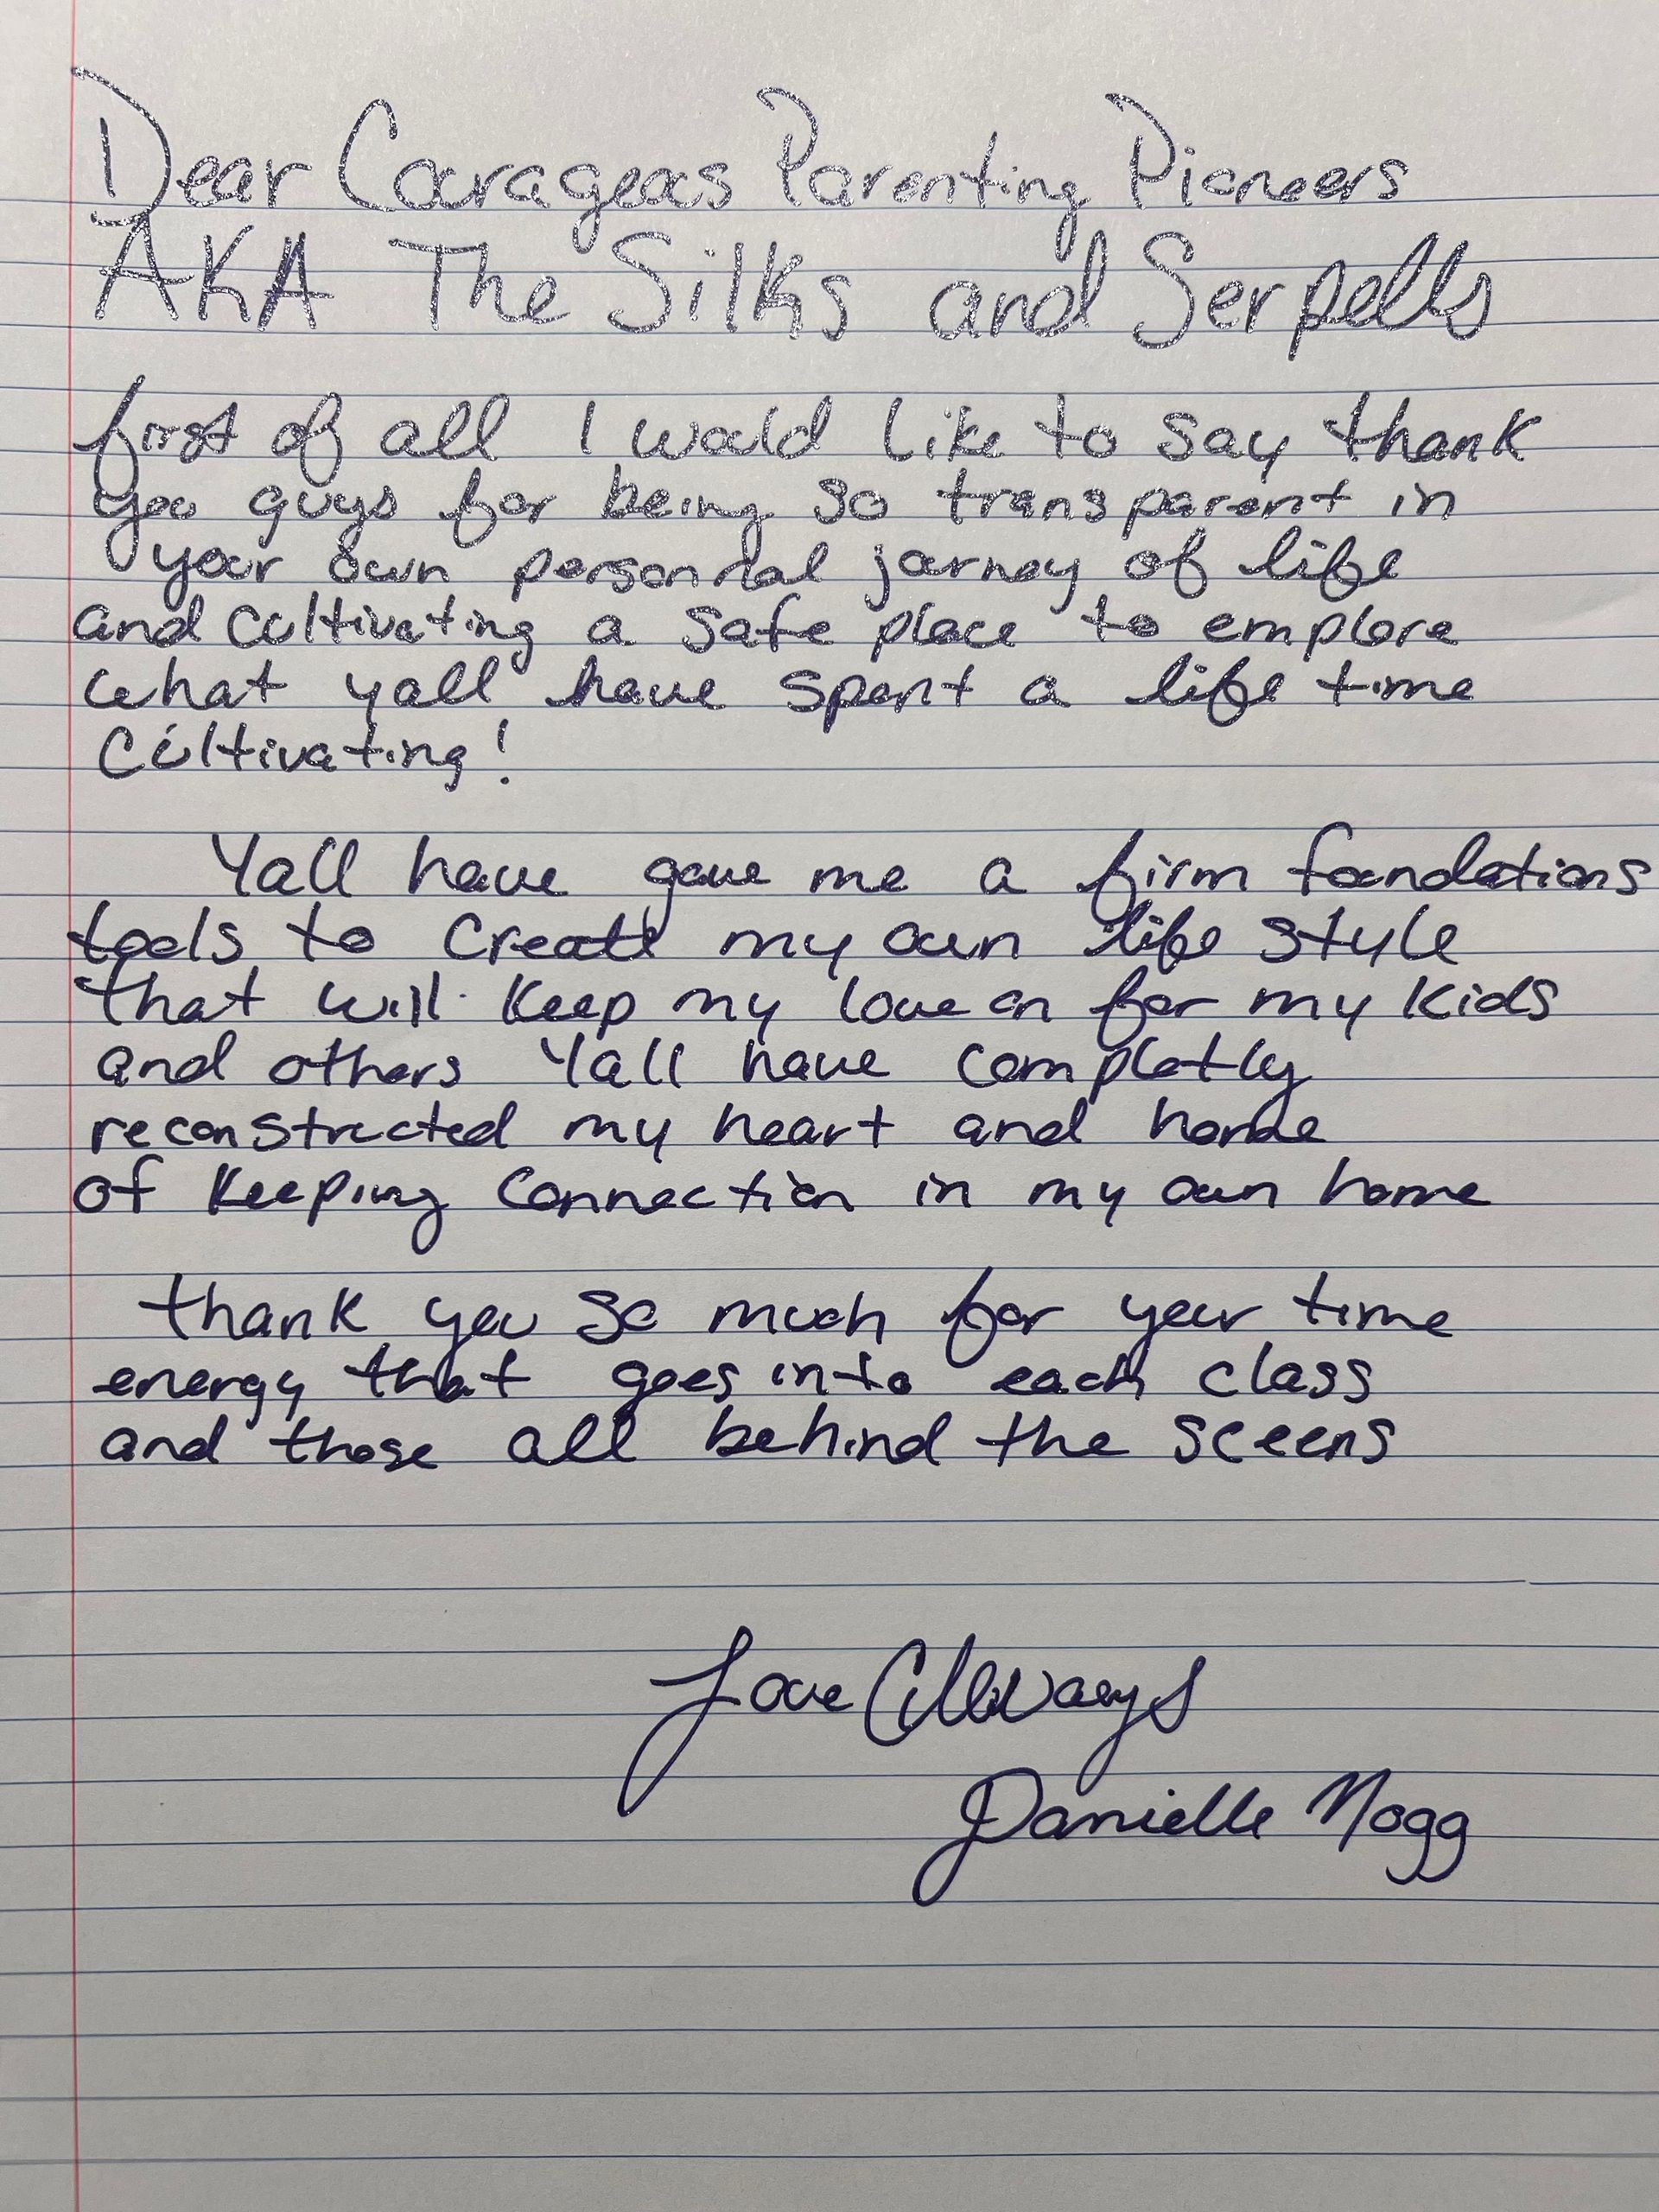 Dear Courageous Parenting Pioneers
AKA The Silks and Serpells
first of all I would like to say thank
you guys for being so transparent in
your own personal journey of life
and cultivating a safe place to emplore
what yall have spent a life time
cultivating!
Yall have gave me a firm foundations
tools to create my own life style
that will keep my love on for my kids
and others Yall have completly
reconstructed my heart and home
of keeping connection in my own home
thank you so much for your time
energy that goes into each class
and those all behind the sceens
Love Always
Danielle Nogg